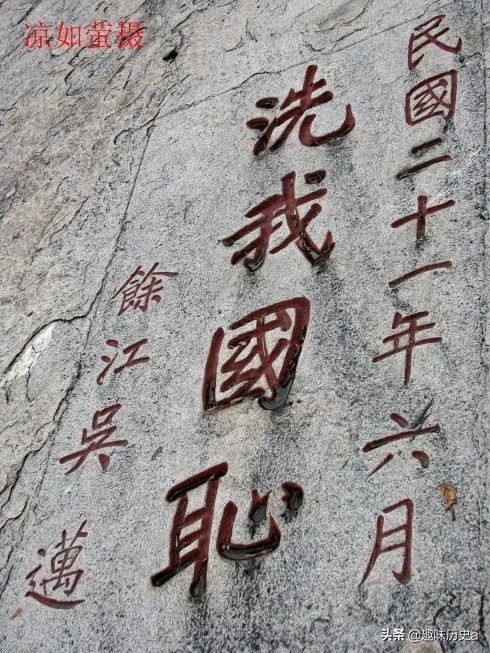 凉如萤摄
民國二十一年六月
洗我國恥
餘江吳邁
头条 @趣味历史a